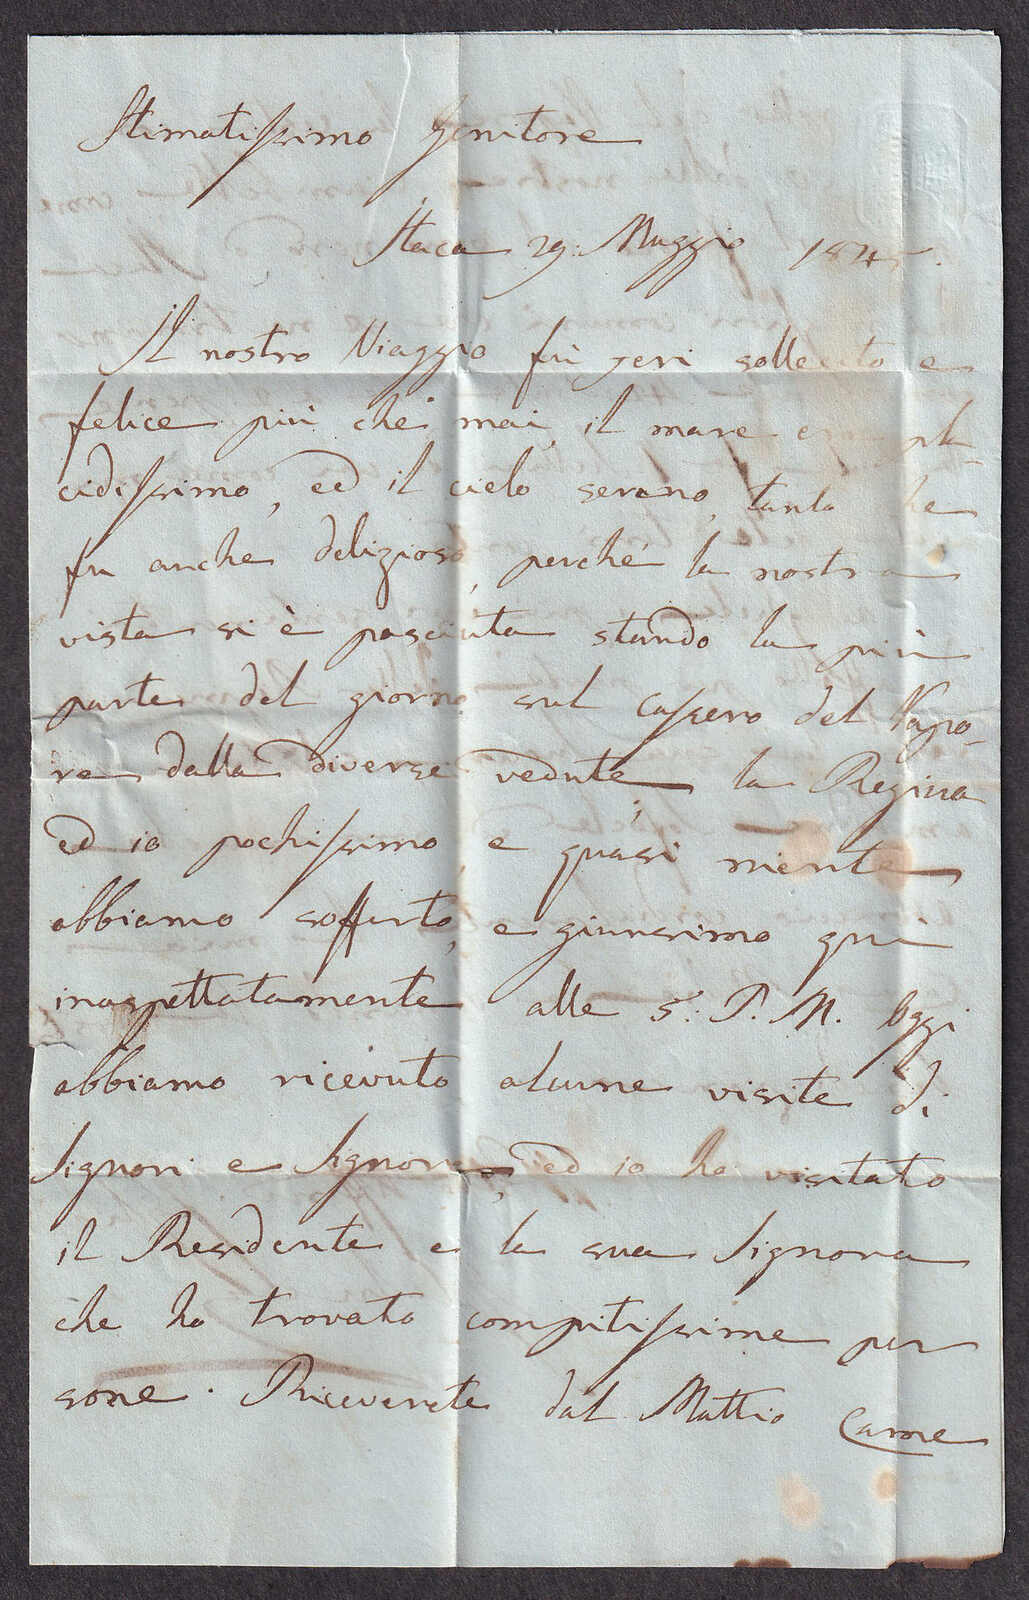 Stimatissimo Genitore
Itaca 29: Maggio 184
Il nostro Viaggio fù jeri sollecito e
felice più che mai, il mare era pla-
cidissimo, ed il cielo sereno, tanto che
fu anche delizioso, perchè la nostra
vista si è pasciuta stando la più
parte del giorno sul cassero del Vapo-
re dalla diverse vedute, la Regina
ed io pochissimo, e quasi niente
abbiamo sofferto, e giunsimo quì
inaspettatamente alle 5: P. M. Oggi
abbiamo ricevuto alcune visite di
Signori e Signore, ed io ho visitato
il Residente e la sua Signora
che ho trovato compitissime per
sone. Riceverete dal Mattio Carne